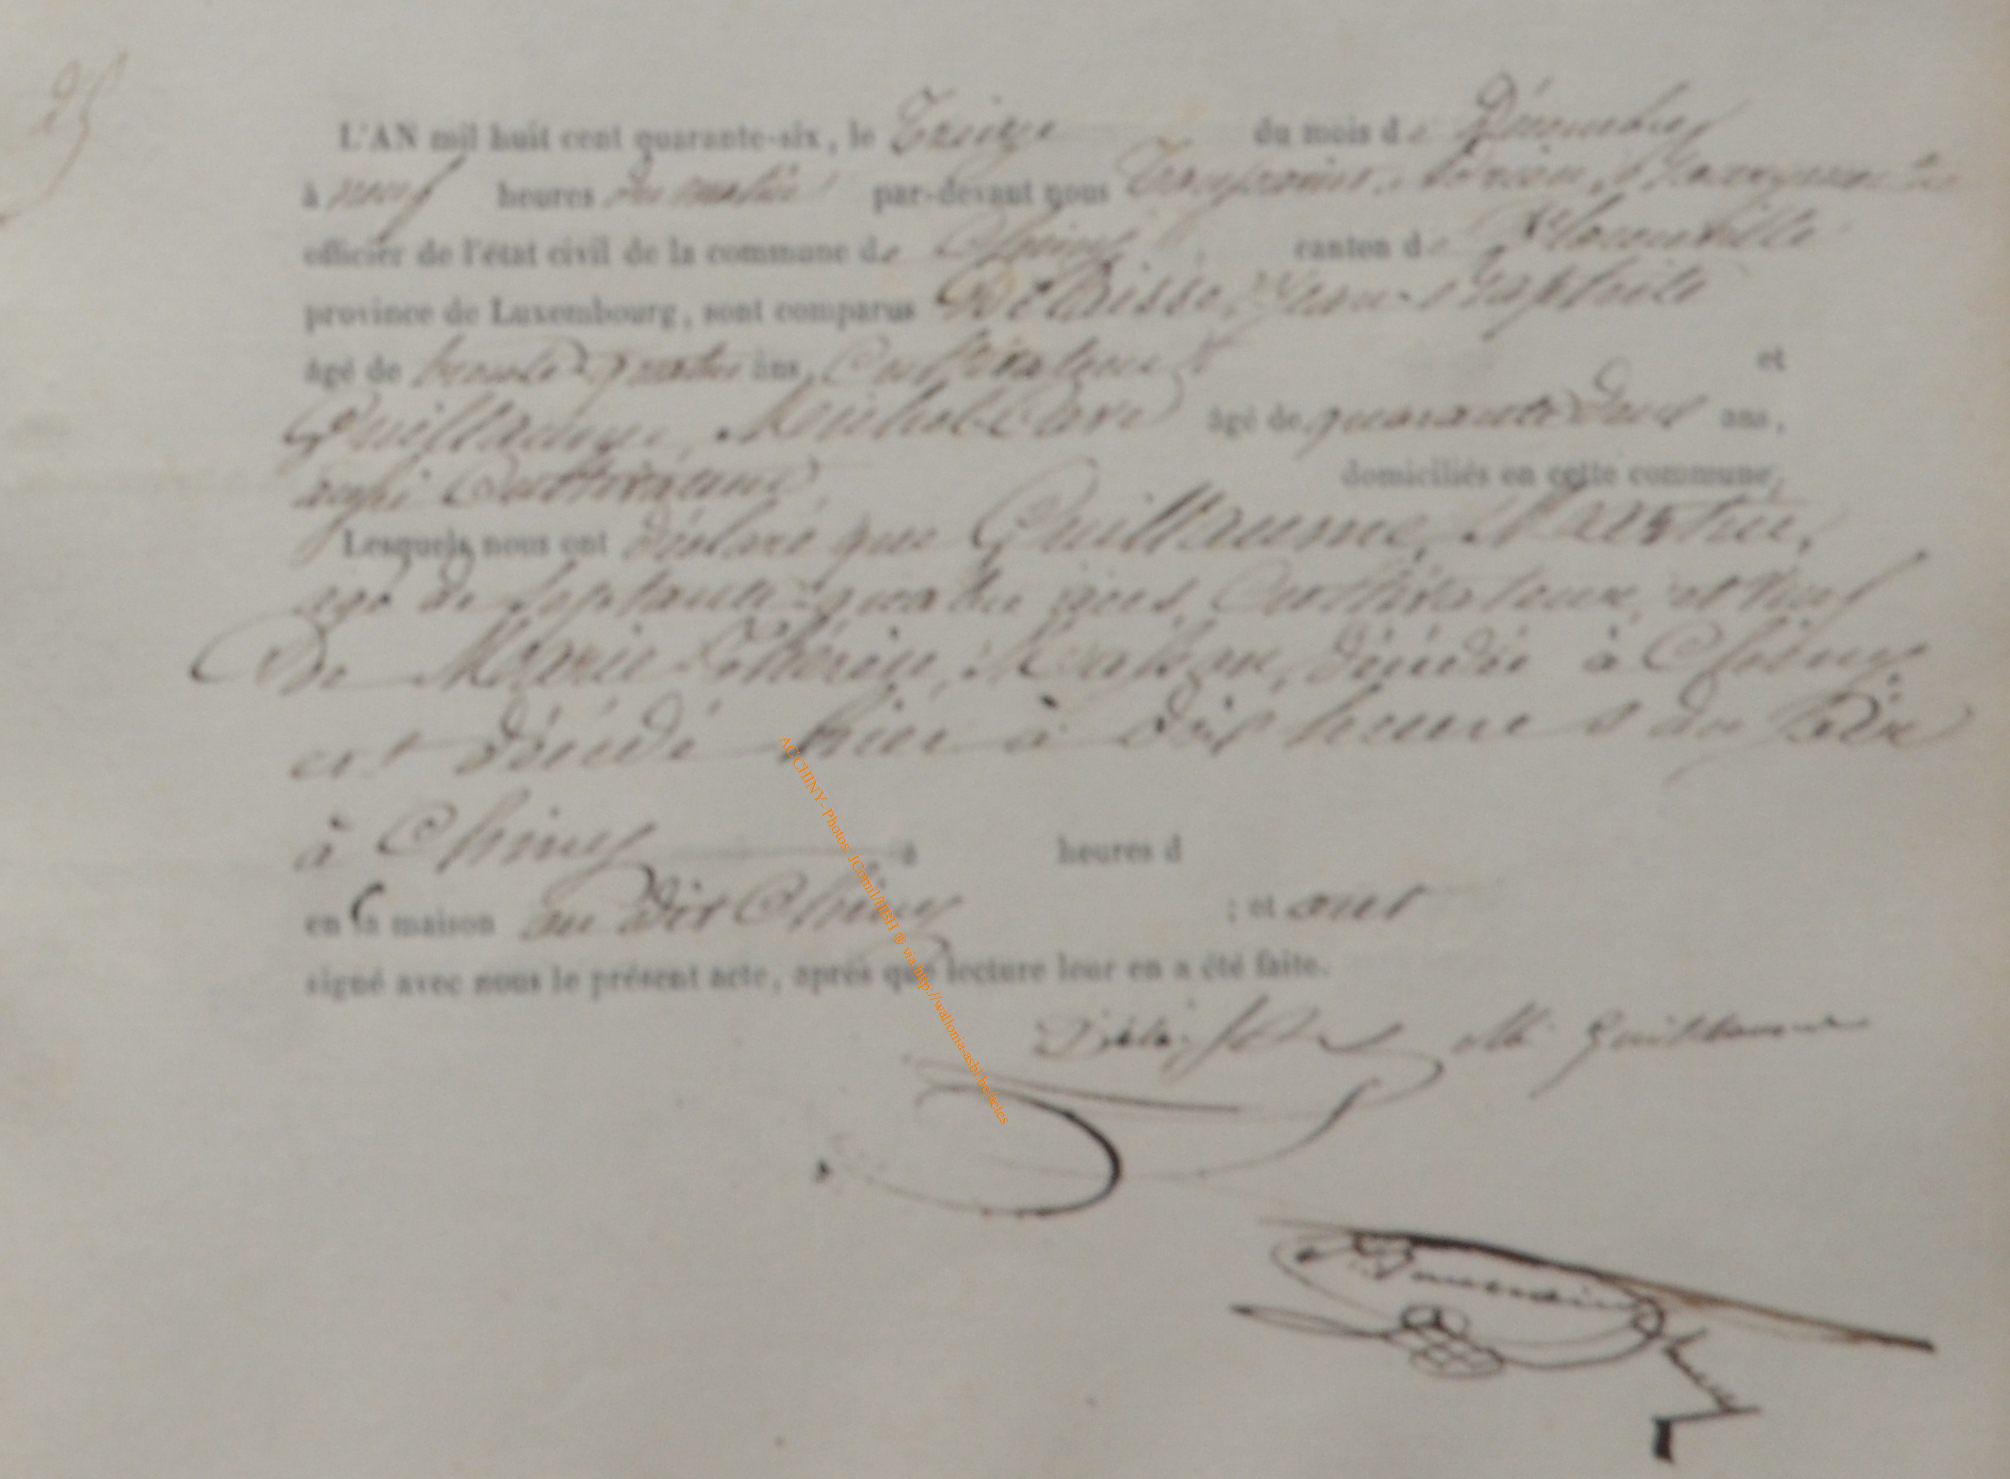 25
L'AN mil huit cent quarante-six, le Treize du mois de Décembre
à neuf heures du matin par-devant nous
officier de l'état civil de la commune de Chiny canton de Florenville
province de Luxembourg, sont comparus Jean-Baptiste
âgé de trente-quatre ans, Cultivateur et
Guillaume, Michel âgé de quarante deux ans,
aussi Cultivateur domiciliés en cette commune,
Lesquels nous ont déclaré que Guillaume, Martin,
agé de septante-quatre ans, Cultivateur, et veuf
De Marie décédée à Chiny
est décédé hier à dix heures du soir
à Chiny à heures d
en sa maison au dit Chiny ; et ont
signé avec nous le présent acte, après que lecture leur en a été faite.
M. Guillaume
AC CHINY- Photos: via http://wallonia-asbl.be/heles